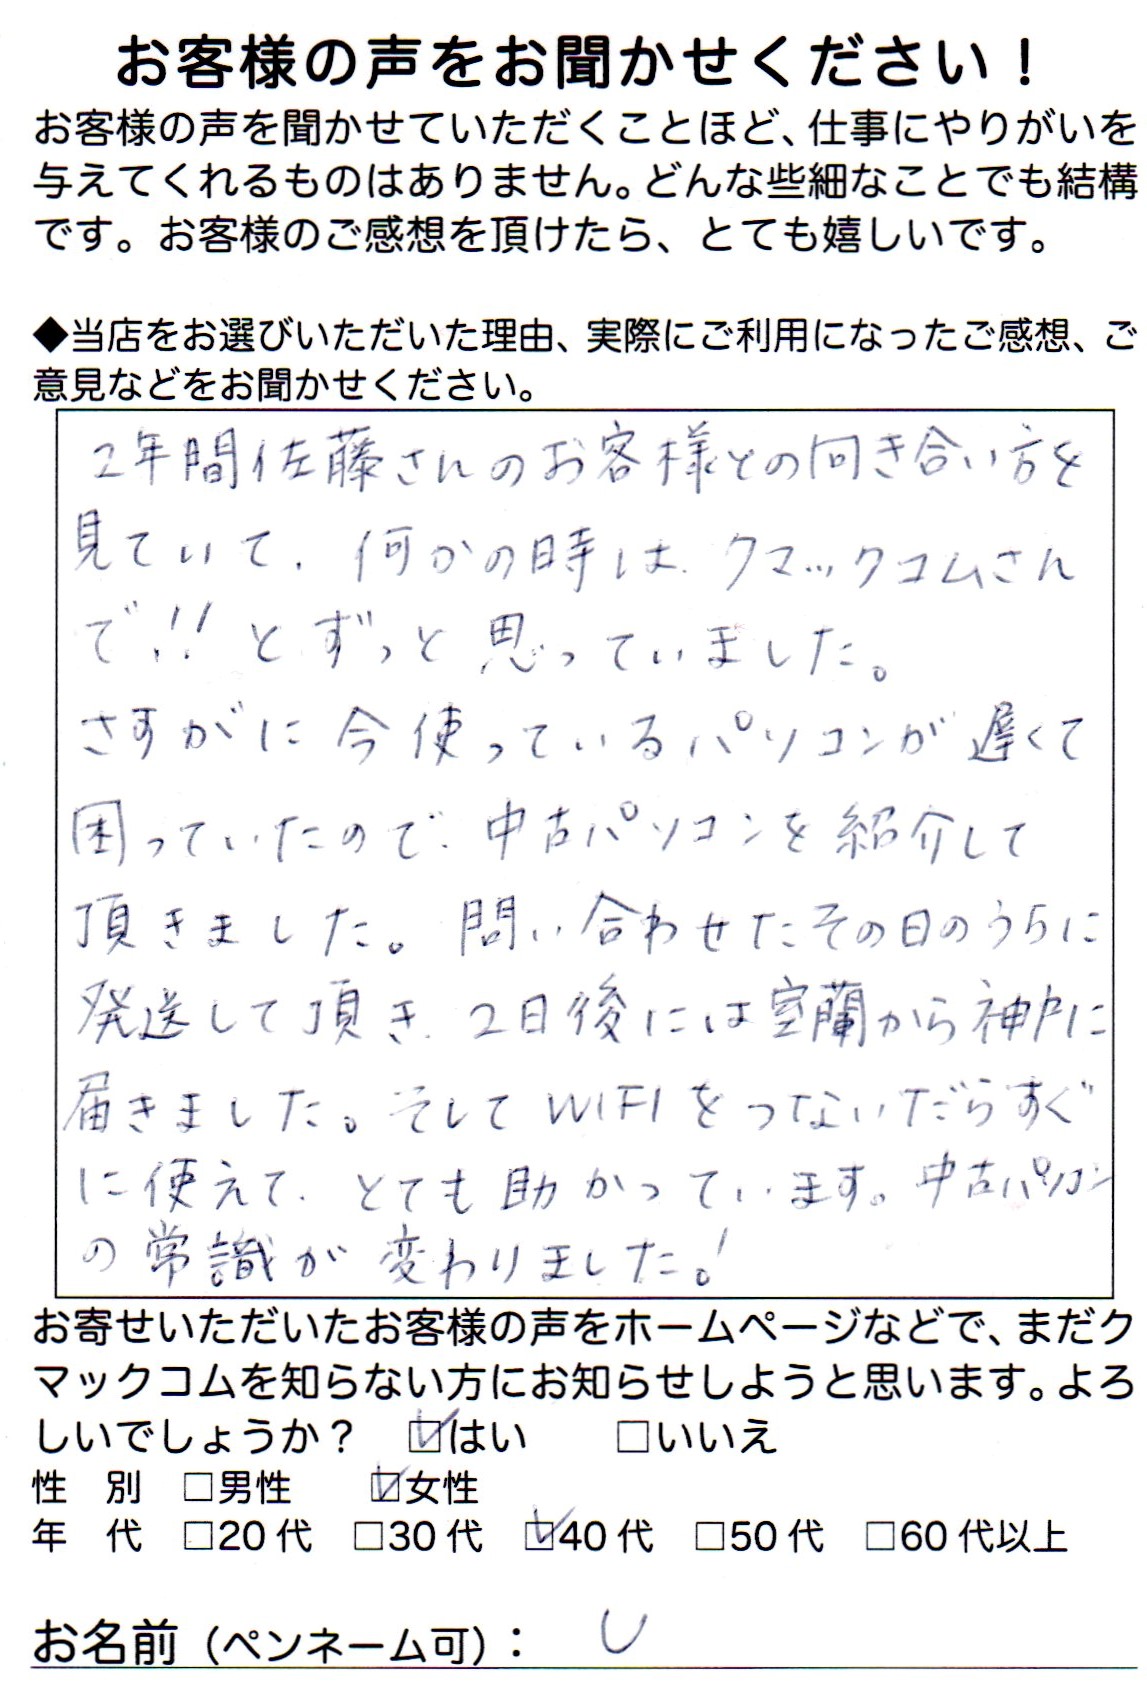 お客様の声をお聞かせください！
お客様の声を聞かせていただくことほど、仕事にやりがいを
与えてくれるものはありません。どんな些細なことでも結構
です。お客様のご感想を頂けたら、とても嬉しいです。
◆当店をお選びいただいた理由、実際にご利用になったご感想、ご
意見などをお聞かせください。
2年間佐藤さんのお客様との向き合い方を
見ていて、何かの時は、クマックコムさん
で!!とずっと思っていました。
さすがに今使っているパソコンが遅くて
困っていたので、中古パソコンを紹介して
頂きました。問い合わせたその日のうちに
発送して頂き、2日後には室蘭から神戸に
届きました。そしてWIFIをつないだらすぐ
に使えて、とても助かっています。中古パソコン
の常識が変わりました!
お寄せいただいたお客様の声をホームページなどで、まだク
マックコムを知らない方にお知らせしようと思います。よろ
しいでしょうか？ ☑はい □いいえ
性 別 □男性 ☑女性
年 代 □20代 □30代 ☑40代 □50代 □60代以上
お名前（ペンネーム可）： し